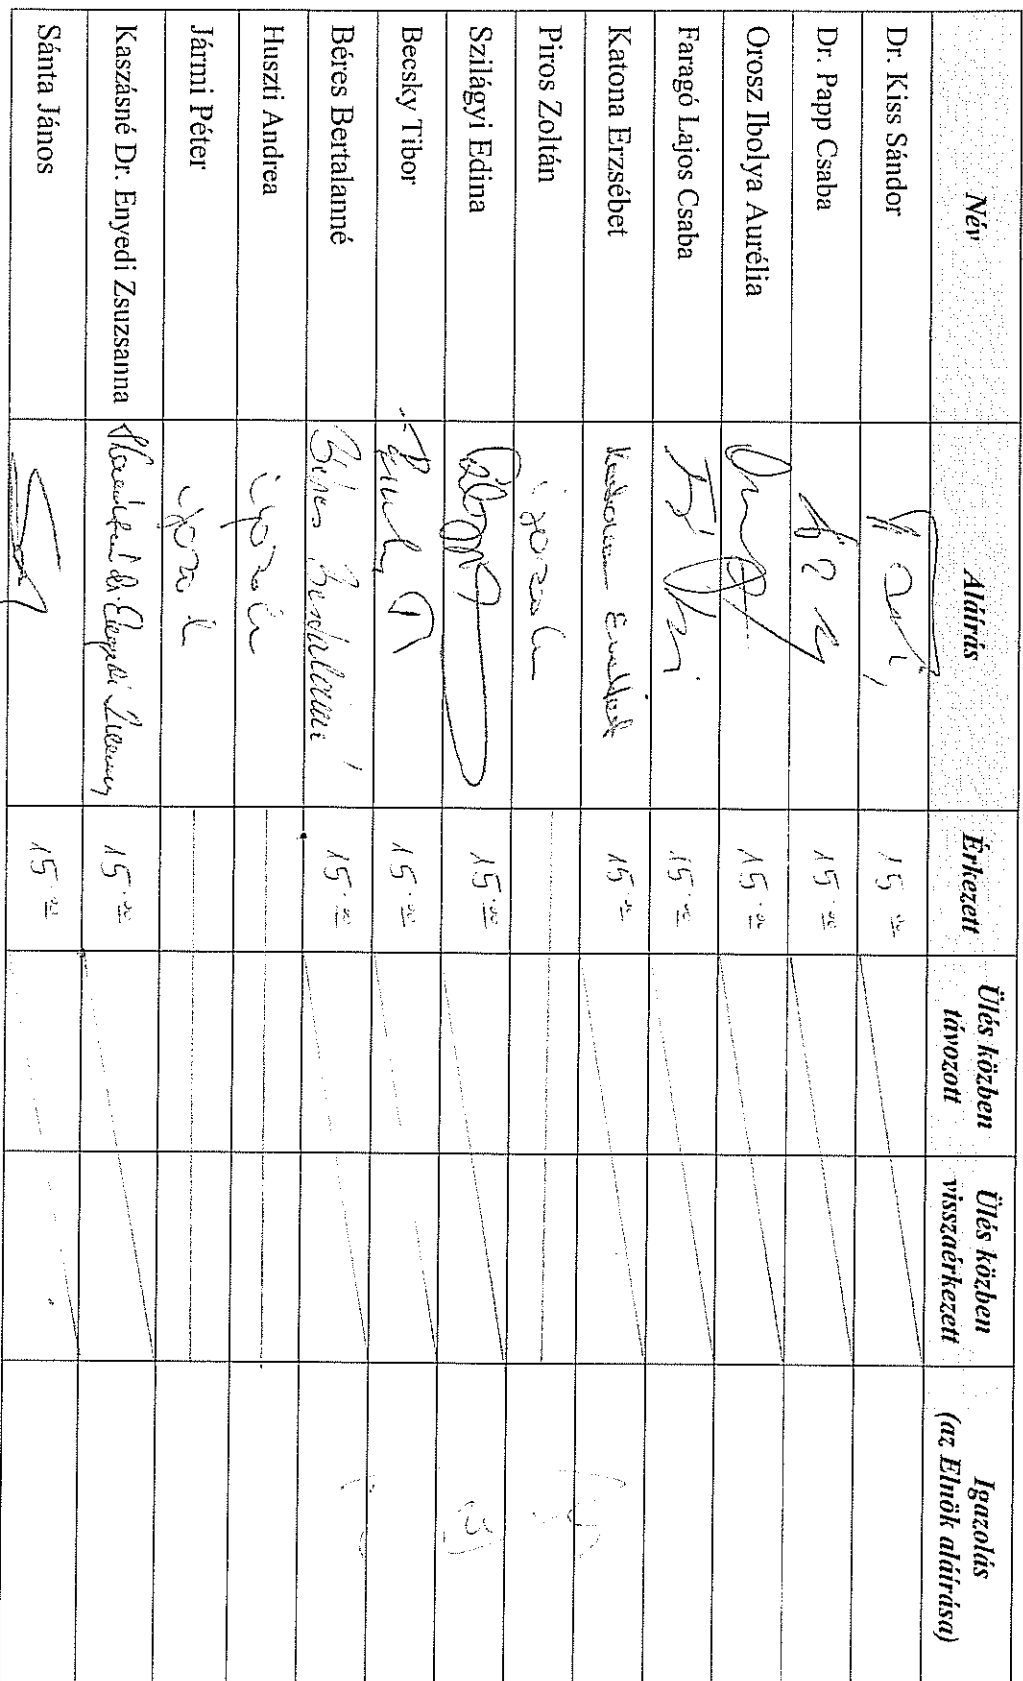 Név Aláírás Érkezett Ülés közben távozott Ülés közben visszaérkezett Igazolás (az Elnök aláírása)
Dr. Kiss Sándor 15
Dr. Papp Csaba 15
Orosz Ibolya Aurélia 15
Faragó Lajos Csaba 15
Katona Erzsébet Katona Erzsébet 15
Piros Zoltán igazolt
Szilágyi Edina 15
Becsky Tibor 15
Béres Bertalanné Béres Bertalanné 15
Huszti Andrea igazolt
Jármi Péter igazolt
Kaszásné Dr. Enyedi Zsuzsanna 15
Sánta János 15